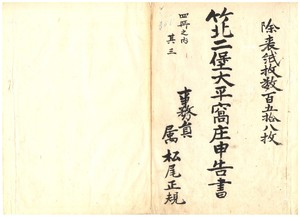 除表紙枚数百五拾八枚
竹北二堡大平窩庄申告書
四冊之内
其三
事務員
属 松尾正規